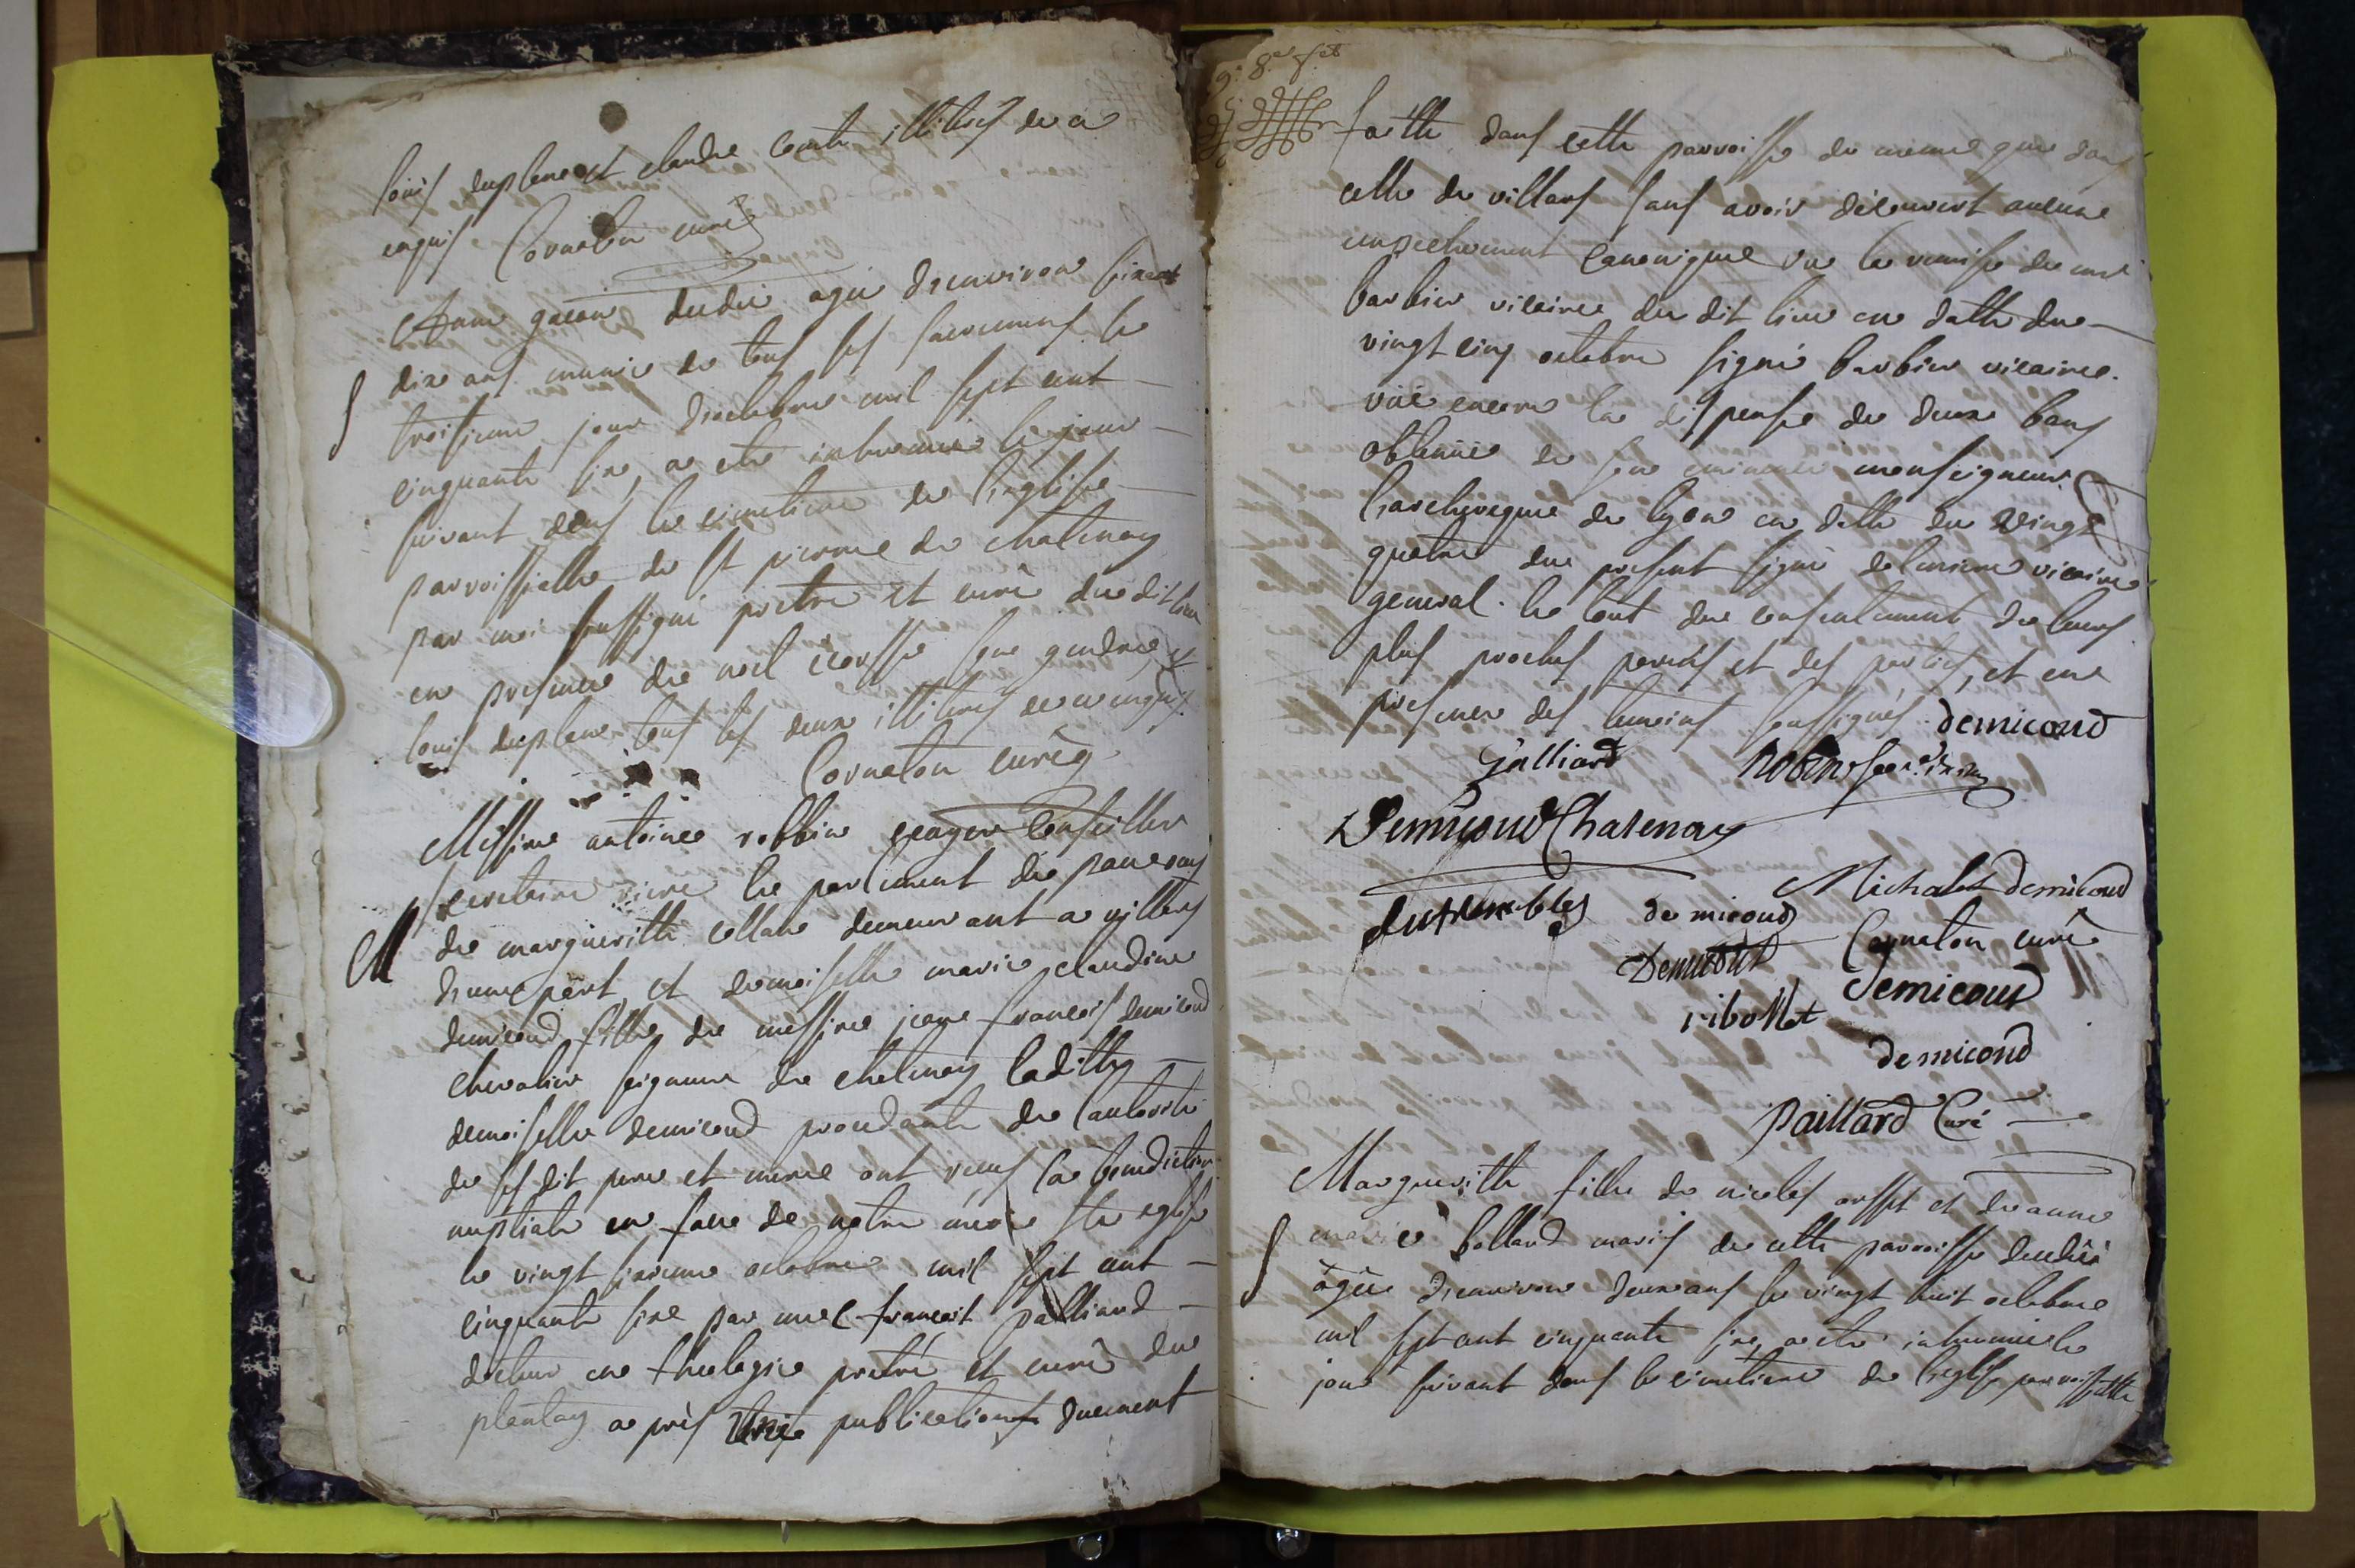 louis duplene et claude comte illitirés de ce
enquis Cornaton curé
Anne gacon decedée agée d'environ soixante
dix ans munie de tous ses sacremens le
troisieme jour d'octobre mil sept cent
cinquante six, a eté inhumée le jour
suivant dans le cimetiere de l'eglise
parroissialle de st pierre de chatenay
par moi soussigné pretre et curé du dit lieu
en presence de noel son gendre et
louis duplene tous les deux illitirés de ce enquis
Cornaton curé
Messire antoine robbin ecuyer conseiller
secretaire le parlement de
de margueritte demeurant a villars
d'une part, et demoiselle marie claudine
demicoud fille de messire jean francois demicoud
chevalier seigneur de chatenay laditte
demoiselle demicoud procedante de l'autorité
de ses dit pere et mere ont recus la benediction
nuptiale en face de notre mere ste eglise
le vingt sixieme octobre mil sept cent
cinquante six par me francois palliard
docteur en theologie pretre et curé du
plantay après publications duement
faitte dans cette parroisse de meme que dans
celle de villars sans avoir découvert aucune
empechement canonique vu la remise de me
barbier vicaire du dit lieu en datte du
vingt cinq octobre signé barbier vicaire.
vüe encore la dispense de deux bans
obtenüe de son eminence monseigneur
l'archeveque de lyon en datte du vingt
quatre du present signé vicaire
general. le tout du consentement de leurs
plus proches parens et des parties, et en
presence des temoins soussignés. demicoud
Galliard Robin
Demicoud Chatenay
Michalet demicoud
de micoud
Cornaton curé
Demicoud
Demicoud
ribollet
demicoud
Paillard Curé
Margueritte fille de nicolas et de anne
marie bolland mariés de cette parroisse decedée
agée d'environ deux ans le vingt huit octobre
mil sept cent cinquante six, a eté inhumée le
jour suivant dans le cimetiere de l'eglise parroissialle